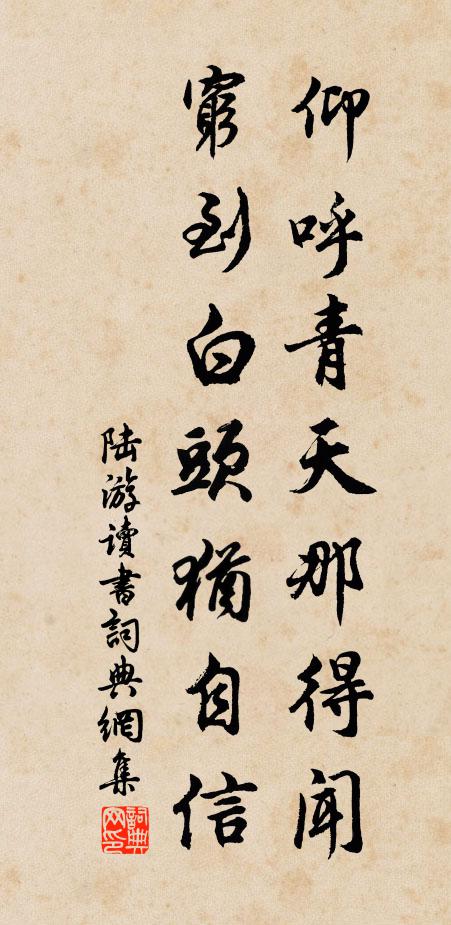 仰呼青天那得聞
窮到白頭猶自信
陸游讀書詞典網集
詞典網印